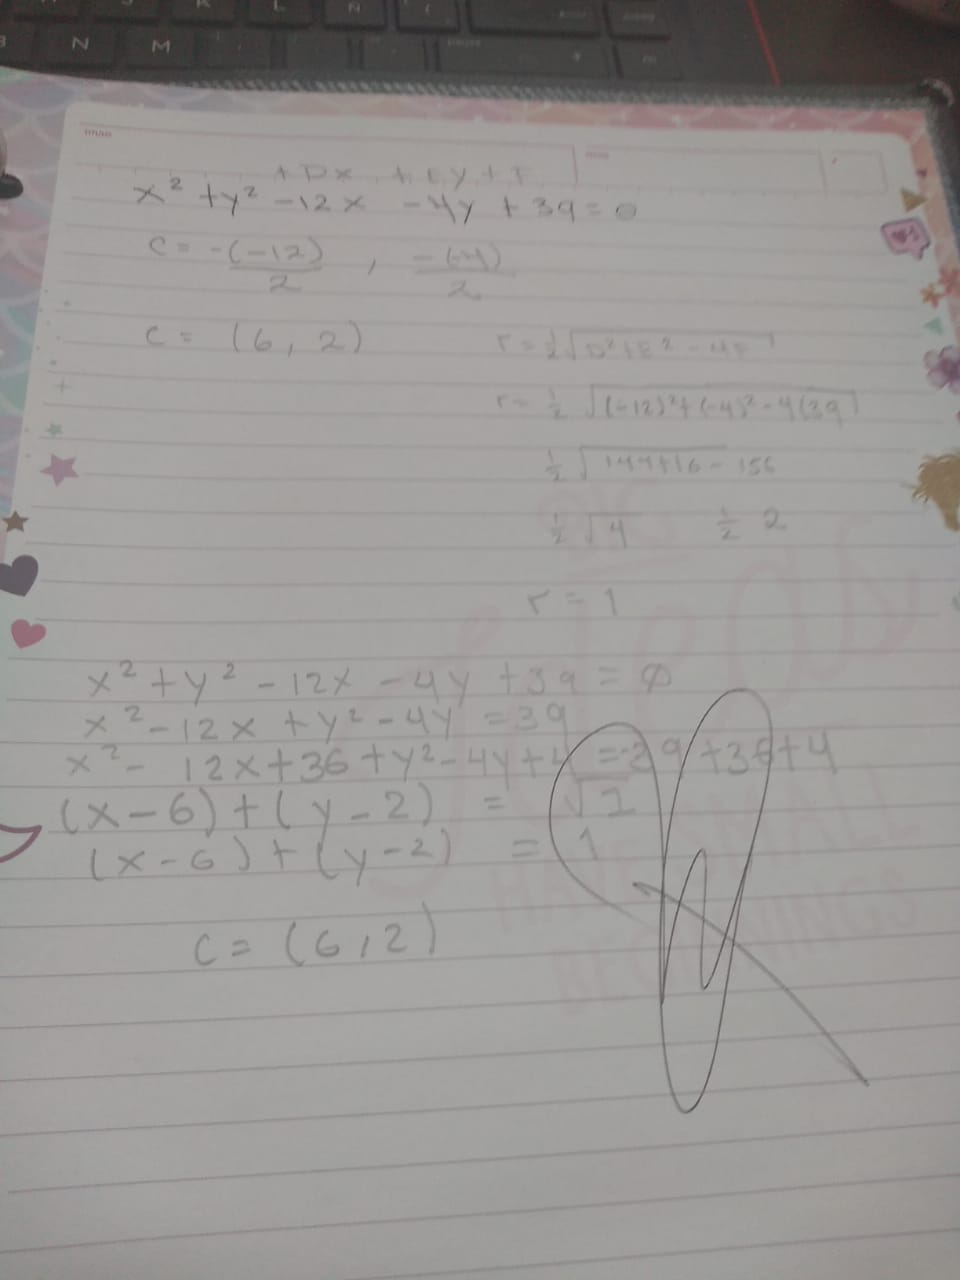 N M
+Dx +Ey+F
x² +y² -12x -4y +39=0
c = -(-12)/2 , -(-4)/2
c = (6, 2)
r = ½√D²+E² - 4F
r = ½ √(-12)²+(-4)²-4(39
½ √144+16- 156
½ √4 ½ 2
r = 1
x² +y² -12x -4y +39 = Ø
x² -12x +y² -4y =39
x² - 12x+36+y²-4y+4 =-39+36+4
(x-6)+(y-2) = √1
(x-6)+(y-2) = 1
C= (6,2)